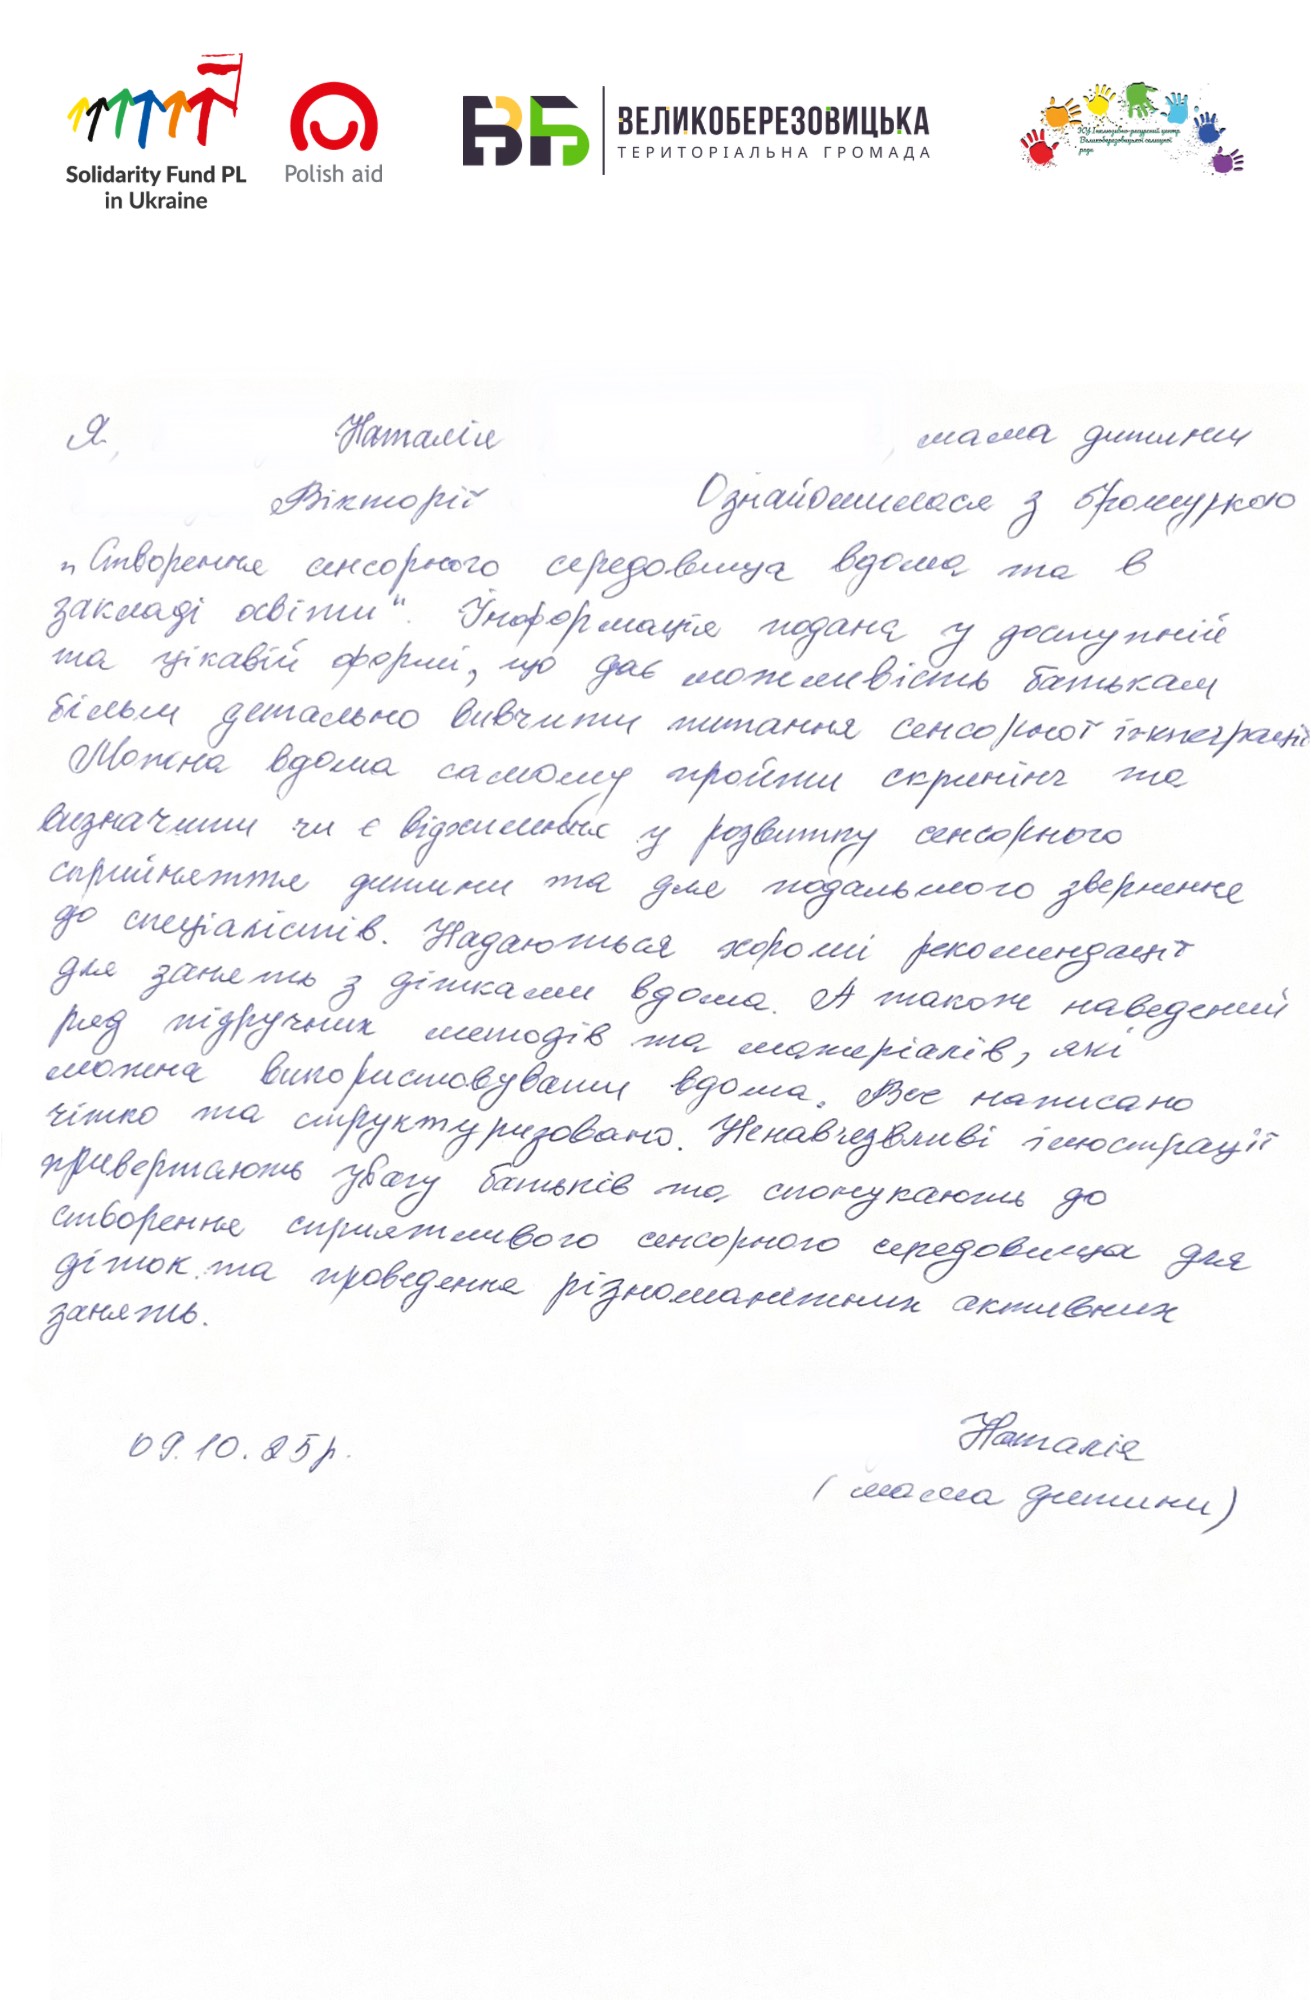 Solidarity Fund PL
in Ukraine
Polish aid
ВБ
ВЕЛИКОБЕРЕЗОВИЦЬКА
ТЕРИТОРІАЛЬНА ГРОМАДА
КУ Інклюзивно-ресурсний центр
Великоберезовицької селищної
ради
Я, Наталія , мама дитини
Вікторії Ознайомилася з брошуркою
„Створення сенсорного середовища вдома та в
закладі освіти“. Інформація подана у доступній
та цікавій формі, що дає можливість батькам
більш детально вивчити питання сенсорної інтеграції
Можна вдома самому пройти скринінг та
визначити чи є відхилення у розвитку сенсорного
сприйняття дитини та для подальшого звернення
до спеціалістів. Надаються хороші рекомендації
для занять з дітками вдома. А також наведений
ряд підручних методів та матеріалів, які
можна використовувати вдома. Все написано
чітко та структуризовано. Ненавчезвливі ілюстрації
привертають увагу батьків та спонукають до
створення сприятливого сенсорного середовища для
діток та проведення різноманітних активних
занять.
09.10.25р.
Наталія
(мама дитини)